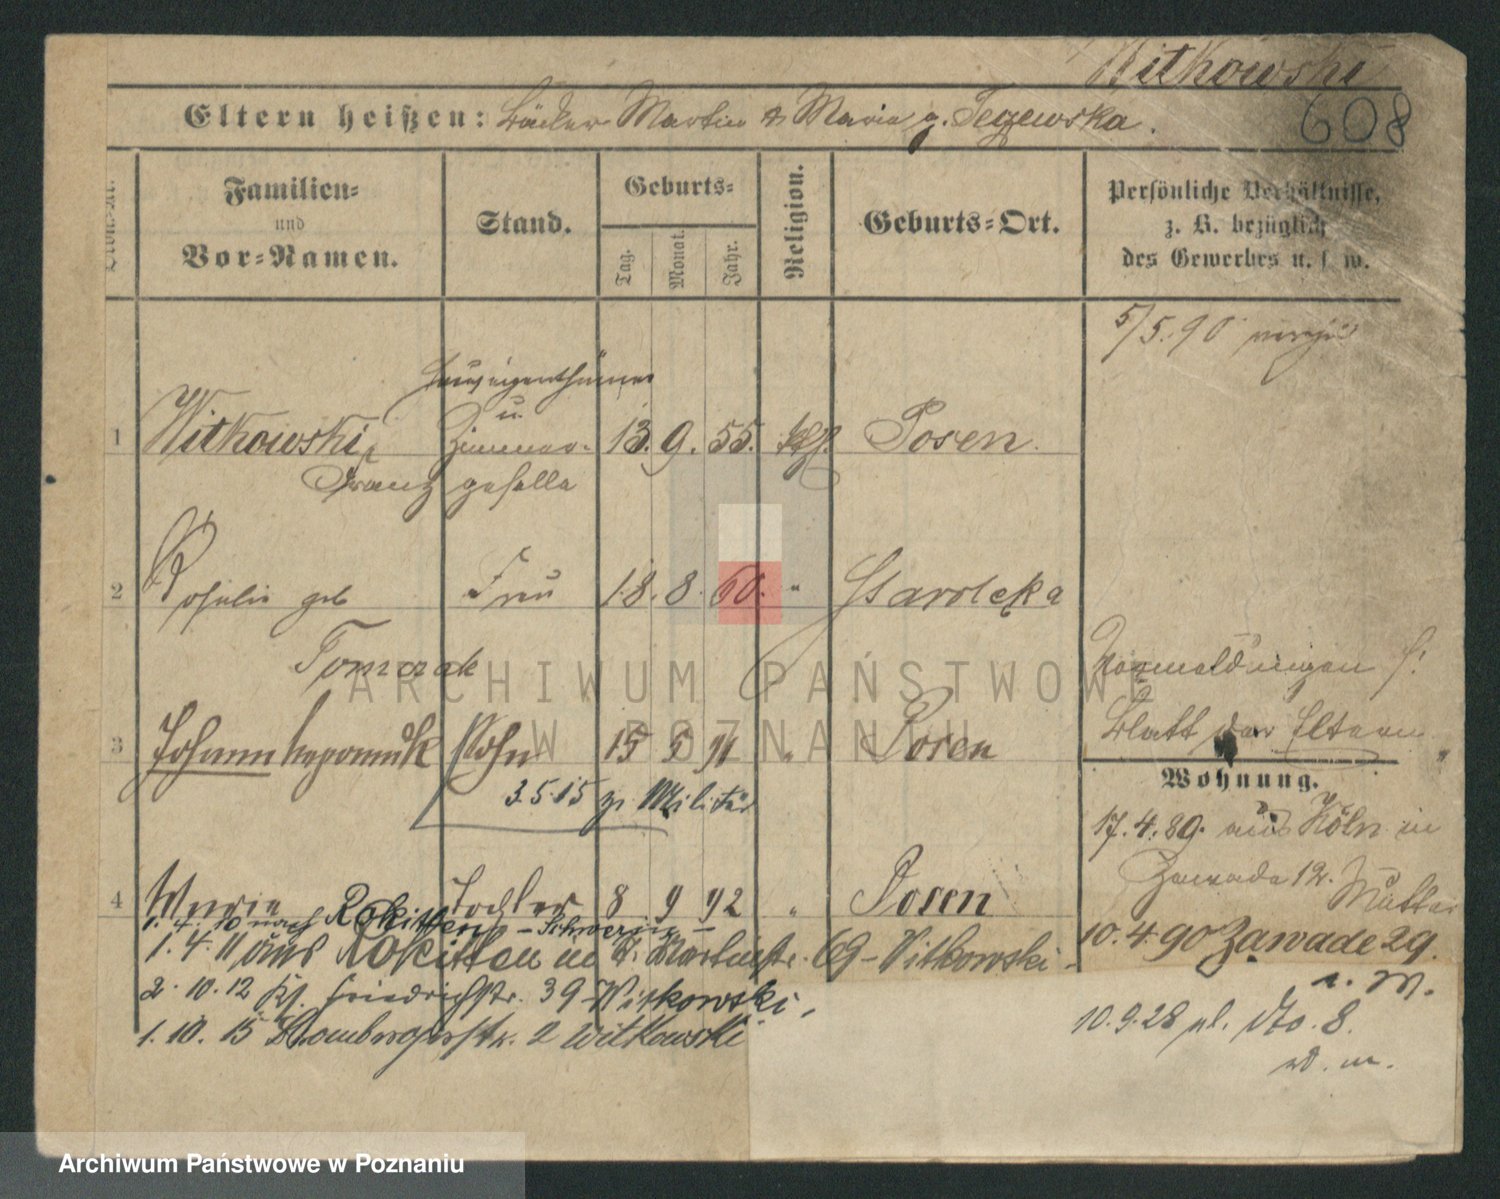 Witkowski
608
Eltern heißen: Bäcker Martin & Maria g. Tezewska.
Familien=
und
Vor=Namen.
Stand.
Geburts=
Tag.
Monat.
Jahr.
Religion.
Geburts=Ort.
Persönliche Verhältnisse,
z. B. bezüglich
des Gewerbes u. s. w.
5/5.90
Hauseigenthümer
u.
1 Witkowski, Zimmer= 13. 9. 55. kth. Posen.
Franz geselle
2 Rosalie geb Frau 18. 8. 60. " Staroleka
Tomczak
3 Johann Nepomuk Sohn 15 5 91 " Posen
3.5.15 z. Militär
4 Maria Tochter 8 9 92 " Posen
1. 4. 10 nach Rokitten - Schwerin -
1. 4. 11 aus Rokitten in St. Martinstr. 69 - Witkowski -
2. 10. 12 Kl. Friedrichstr. 39 - Witkowski,
1. 10. 15 Brombergerstr. 2 Witkowski
Vormeldungen s:
Blatt der Eltern
Wohnung.
17. 4. 89. aus Köln in
Zawade 12. Mutter
10. 4 90 Zawade 29.
b. M.
10. 9. 28 pl. dto. 8.